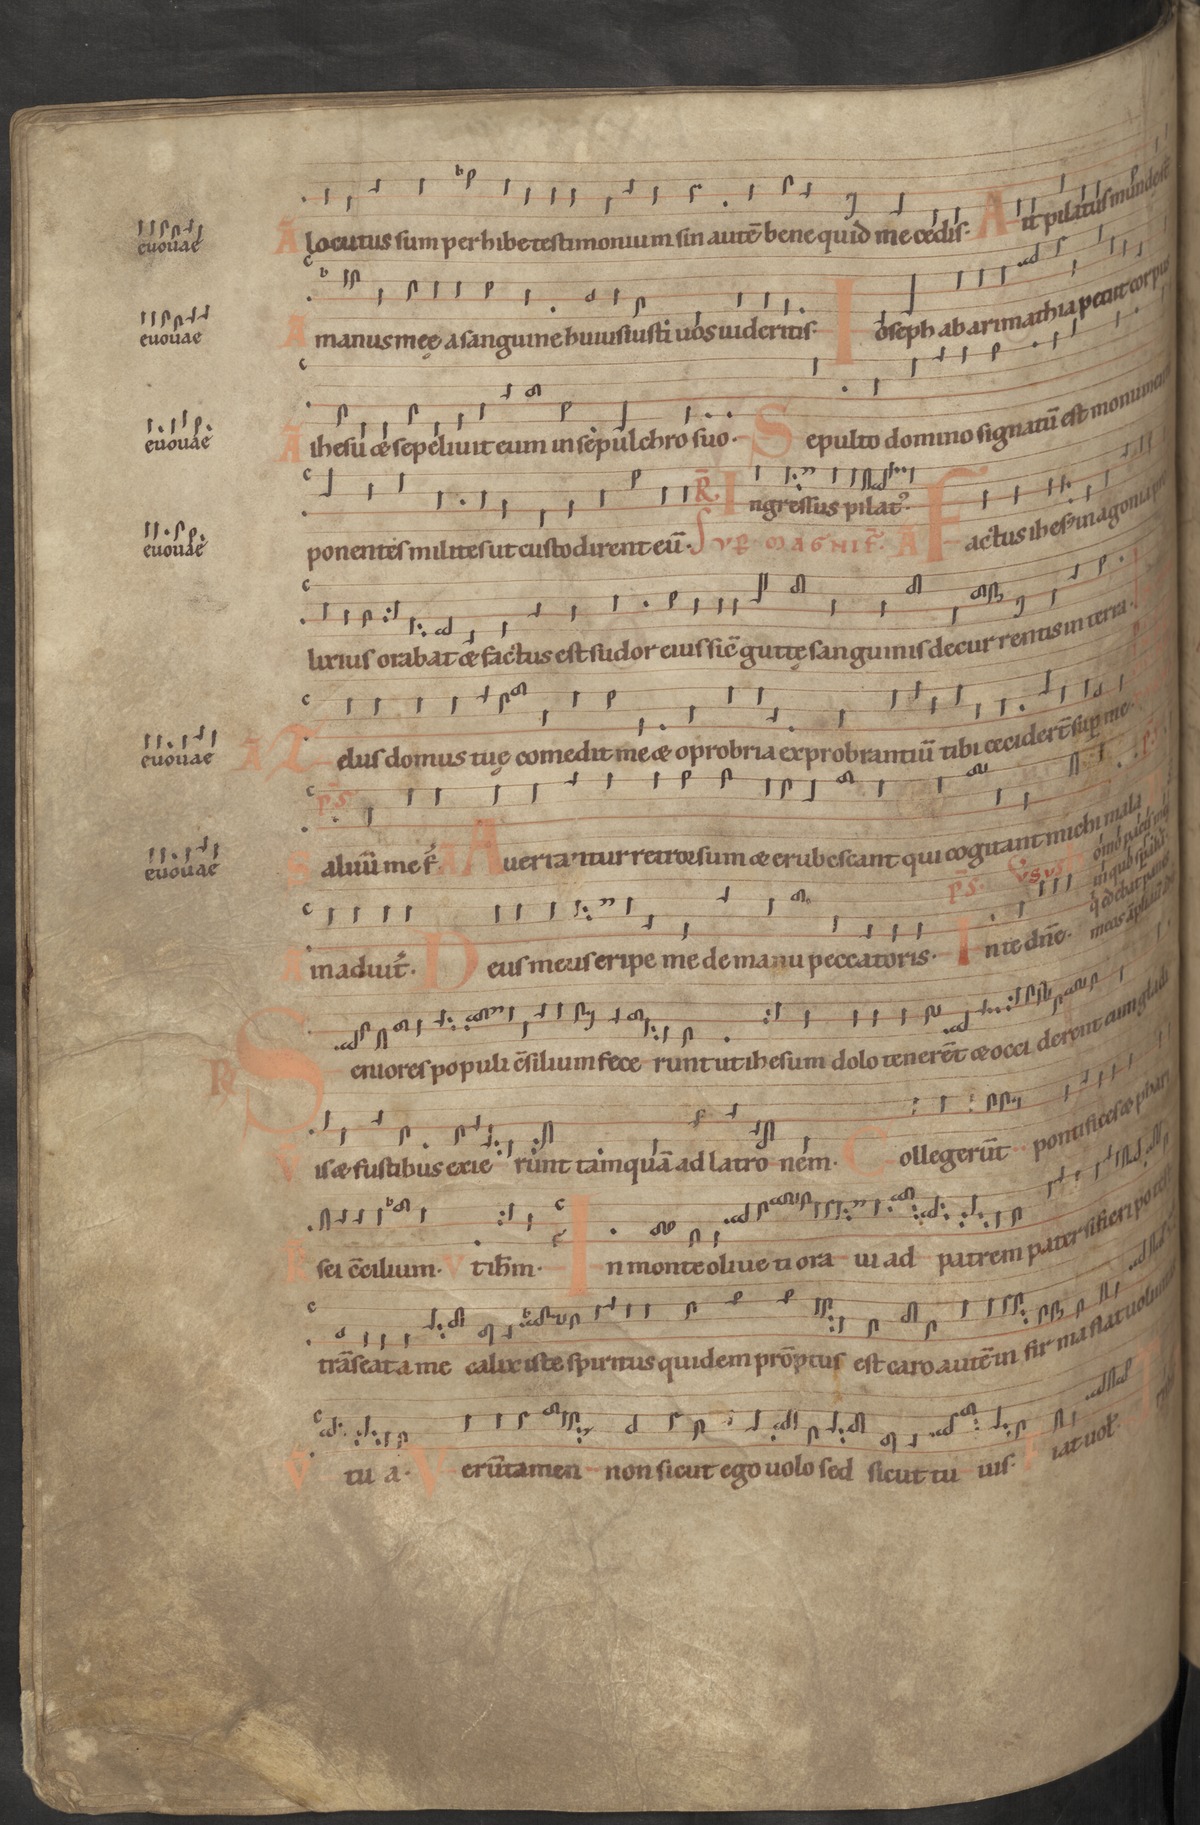 euouae A locutus sum perhibe testimonium sin autē bene quid me cedis· Ait pilatus mundus ē
euouae A manus mee a sanguine huius iusti uos uideritis· Ioseph ab arimathia petiit corpus
euouae A ihesu & sepeliuit eum in sepulchro suo· Sepulto domino signatū est monumen
R̄ Ingressus pilat9·
euouae ponentes milites ut custodirent eū· Sup magnif̄· A Factus ihes9 in agonia pro
lixius orabat & factus est sudor eius sic̄ gutte sanguinis decurrentis in terra·
euouae A Zelus domus tue comedit me & oprobria exprobrantiū tibi cecidert̄ sup me·
ps
euouae Saluū me f· A Auertantur retrorsum & erubescant qui cogitant michi mala
ps· V̄sus
A in adiut̄· Deus meus eripe me de manu peccatoris· In te dn̄e·
R Seniores populi c̄silium fece runt ut ihesum dolo tenerēt & occi derent cum gladi
V is & fustibus exie runt tamquā ad latro nem· Collegerūt pontifices & phari
R̄ sei c̄cilium· V ut ih̄m· In monte oliue ti ora ui ad patrem pater si fieri po test
trāseat a me calix iste spiritus quidem prōptus est caro autē in fir ma fiat uolun
V tu a· Verūtamen non sicut ego uolo sed sicut tu uis· Fiat uol·